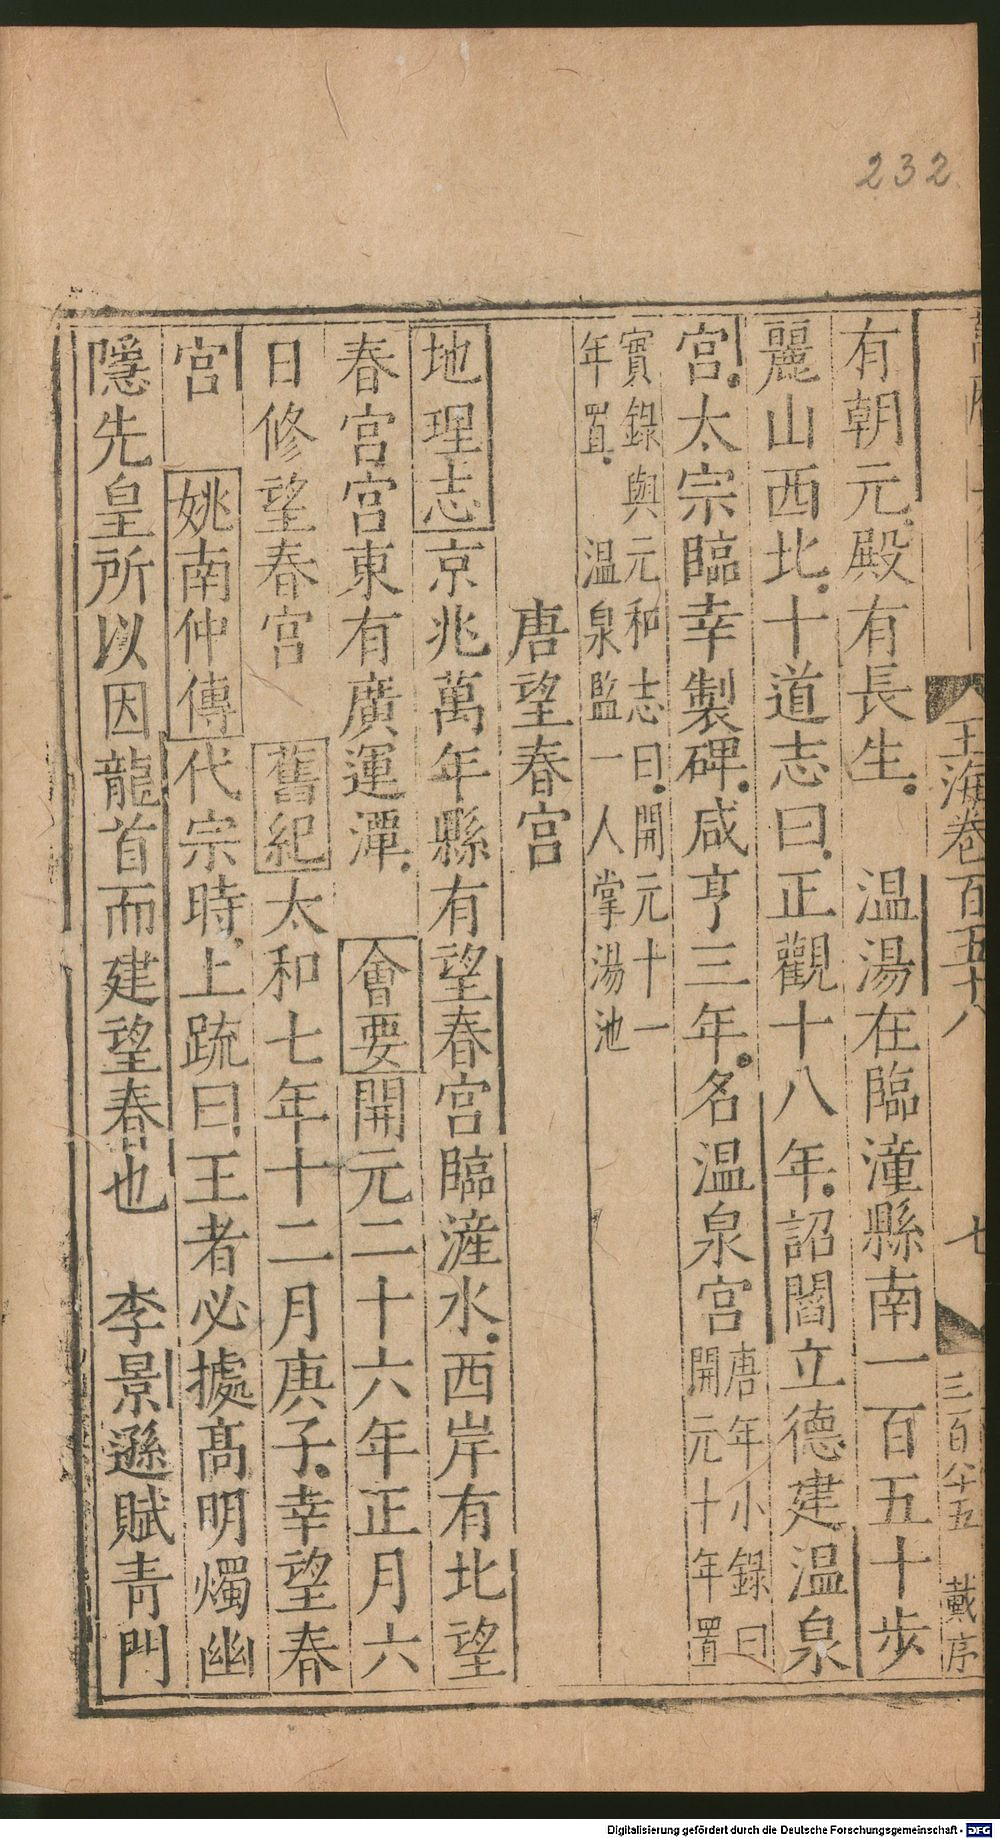 232
玉海卷百五十八 七 三百八十五 戴序
有朝元殿有長生 温湯在臨潼縣南一百五十步
麗山西北十道志曰正觀十八年詔閻立德建温泉
宮太宗臨幸製碑咸亨三年名温泉宮唐年小錄曰開元十年置
實錄與元和志曰開元十一
年置 温泉監一人掌湯池
唐望春宮
地理志京兆萬年縣有望春宮臨滻水西岸有北望
春宮宮東有廣運潭 會要開元二十六年正月六
日修望春宮 舊紀太和七年十二月庚子幸望春
宮 姚南仲傳代宗時上疏曰王者必據髙明燭幽
隱先皇所以因龍首而建望春也 李景遜賦青門
Digitalisierung gefördert durch die Deutsche Forschungsgemeinschaft - DFG